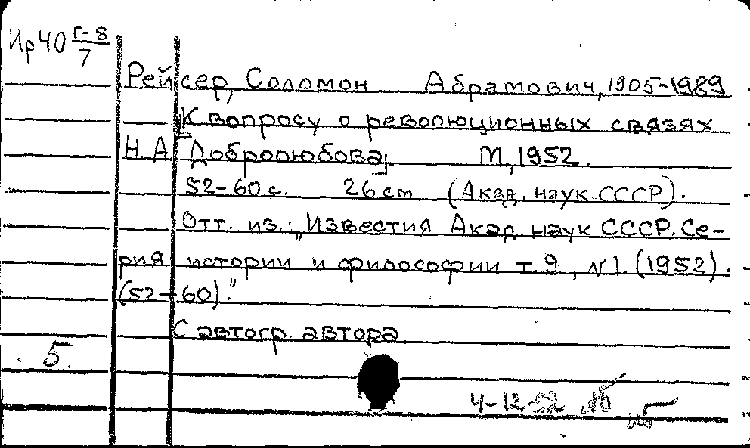 Ир40 Г-8/7
Рейсер, Соломон Абрамович, 1905-1989
К вопросу о революционных связях
Н.А. Добролюбова. М., 1952.
52-60 с. 26 см (Акад. наук СССР).
Отт. из: "Известия Акад. наук СССР. Се-
рия истории и философии т. 9, №1. (1952).
(52-60)."
С автогр. автора
5.
4-12-92